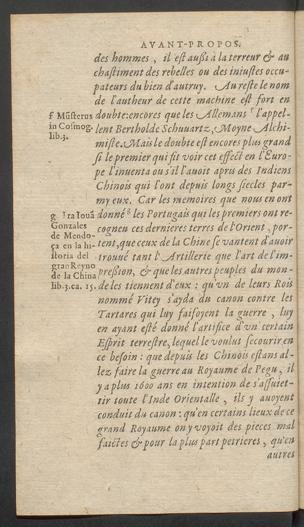 AVANT-PROPOS.
des hommes, il est aussi à la terreur & au
chastiment des rebelles ou des iniustes occu-
pateurs du bien d'autruy. Au reste le nom
de l'autheur de cette machine est fort en
doubte: encores que les Allemans f l'appel-
lent Bertholde Schuuartz, Moyne Alchi-
miste. Mais le doubte est encores plus grand
si le premier qui fit voir cet effect en l'Euro-
pe l'inuenta ou s'il l'auoit apris des Indiens
Chinois qui l'ont depuis longs siecles par-
my eux. Car les memoires que nous en ont
donné g les Portugais qui les premiers ont re-
cogneu ces dernieres terres de l'Orient, por-
tent, que ceux de la Chine se vantent d'auoir
trouué tant l'Artillerie que l'art de l'im-
pression, & que les autres peuples du mon-
de les tiennent d'eux: qu'vn de leurs Rois
nommé Vitey s'ayda du canon contre les
Tartares qui luy faisoyent la guerre, luy
en ayant esté donné l'artifice d'vn certain
Esprit terrestre, lequel le voulut secourir en
ce besoin: que depuis les Chinois estans al-
lez faire la guerre au Royaume de Pegu, il
y a plus 1600 ans en intention de s'assuiet-
tir toute l'Inde Orientalle, ils y auoyent
conduit du canon: qu'en certains lieux de ce
grand Royaume on y voyoit des pieces mal
faictes & pour la plus part petrieres, qu'en
autres
f Mũsterus
in Cosmog.
lib.3.
g Iuã
Gonzales
de Mendo-
ça en la hi-
storia del
gran Reyno
de la China
lib.3.ca. 15.